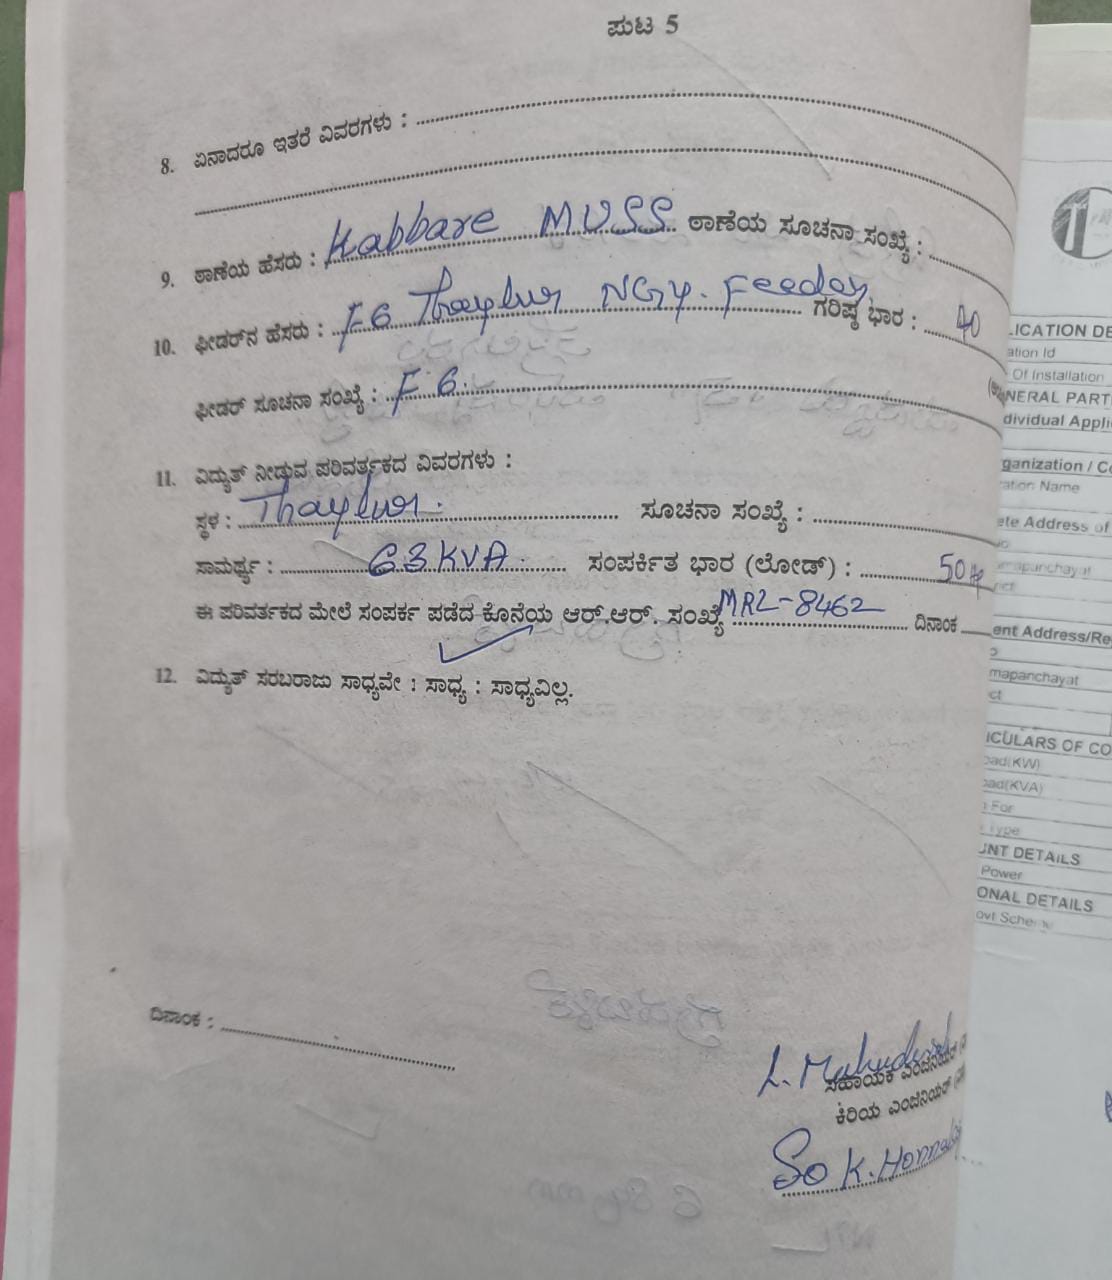 ಪುಟ 5
8. ಏನಾದರೂ ಇತರೆ ವಿವರಗಳು :
9. ಠಾಣೆಯ ಹೆಸರು : Habbare MUSS ಠಾಣೆಯ ಸೂಚನಾ ಸಂಖ್ಯೆ :
10. ಫೀಡರ್‌ನ ಹೆಸರು : F6 Thaylur NGY. Feeder ಗರಿಷ್ಠ ಭಾರ : 40
ಫೀಡರ್ ಸೂಚನಾ ಸಂಖ್ಯೆ : F 6.
11. ವಿದ್ಯುತ್ ನೀಡುವ ಪರಿವರ್ತಕದ ವಿವರಗಳು :
ಸ್ಥಳ : Thaylur. ಸೂಚನಾ ಸಂಖ್ಯೆ :
ಸಾಮರ್ಥ್ಯ : 63 KVA ಸಂಪರ್ಕಿತ ಭಾರ (ಲೋಡ್) : 50 Hp
ಈ ಪರಿವರ್ತಕದ ಮೇಲೆ ಸಂಪರ್ಕ ಪಡೆದ ಕೊನೆಯ ಆರ್.ಆರ್. ಸಂಖ್ಯೆ MRL-8462 ದಿನಾಂಕ
12. ವಿದ್ಯುತ್ ಸರಬರಾಜು ಸಾಧ್ಯವೇ : ಸಾಧ್ಯ : ಸಾಧ್ಯವಿಲ್ಲ.
ದಿನಾಂಕ :
ಸಹಾಯಕ ಎಂಜಿನಿಯರ್
ಕಿರಿಯ ಎಂಜಿನಿಯರ್
So K.
LICATION DE
ation Id
Of Installation
NERAL PART
dividual Appli
ganization / Co
ation Name
ete Address of
ent Address/Re
mapanchayat
ct
ICULARS OF CO
oad(KW)
oad(KVA)
For
Type
UNT DETAILS
Power
ONAL DETAILS
ovt Scheme